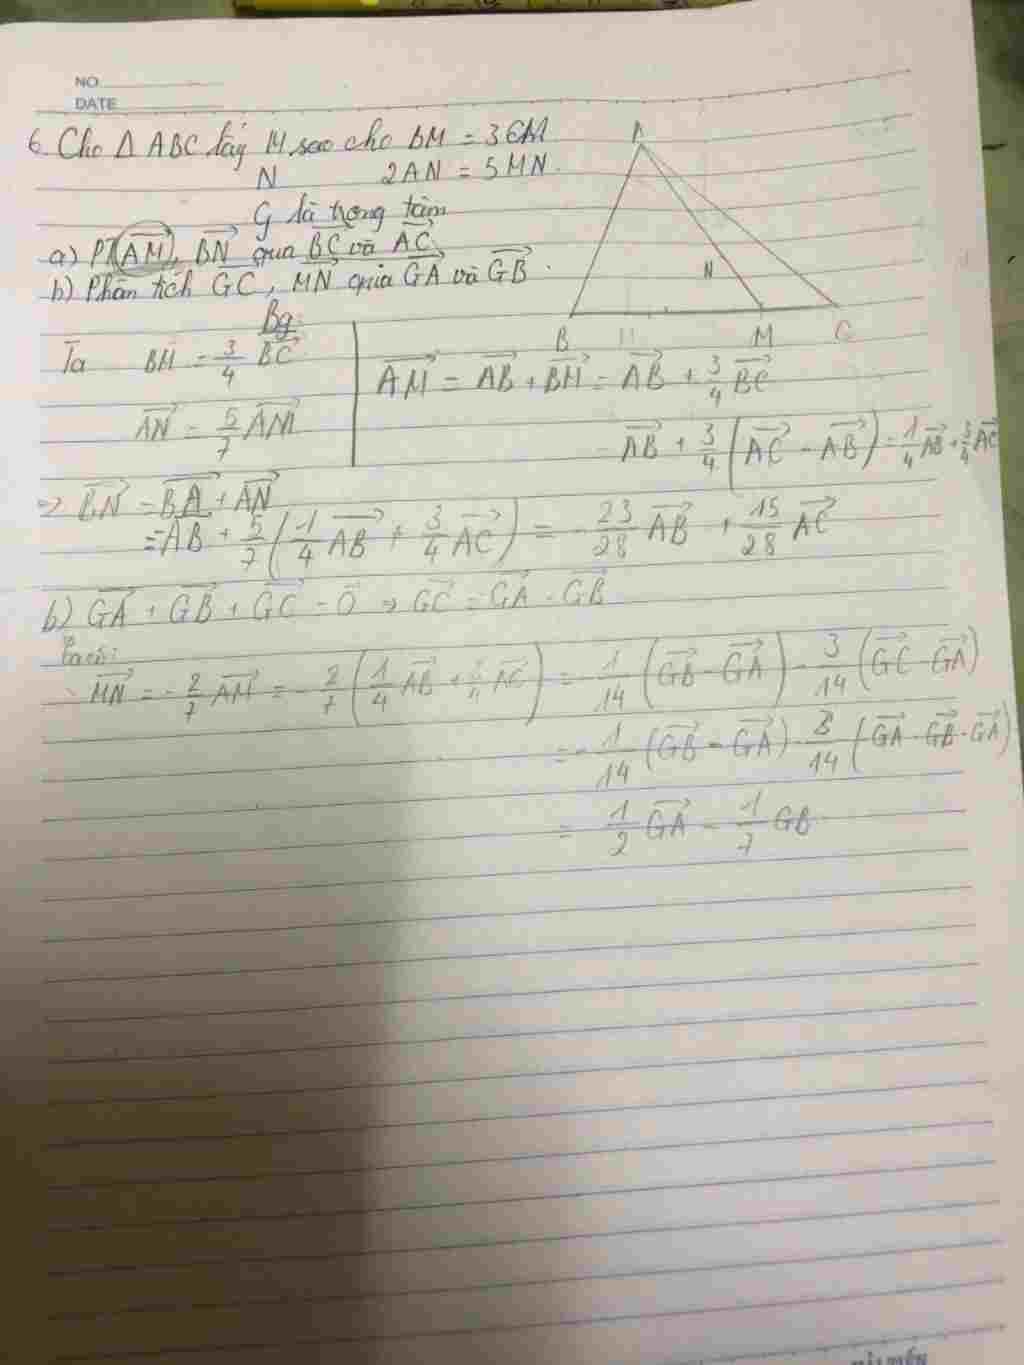 NO
DATE
6. Cho Δ ABC lấy M sao cho BM = 3CM
N 2AN = 5MN.
G là trọng tâm
a) PT AM, BN qua BC và AC
b) Phân tích GC, MN qua GA và GB.
A
N
B M C
Bg:
Ta BM = 3/4 BC
AN = 5/7 AM
AM = AB + BM = AB + 3/4 BC
AB + 3/4 (AC - AB) = 1/4 AB + 3/4 AC
=> BN = BA + AN
= -AB + 5/7 (1/4 AB + 3/4 AC) = -23/28 AB + 15/28 AC
b) GA + GB + GC = 0 => GC = -GA - GB
Ta có:
MN = -2/7 AM = -2/7 (1/4 AB + 3/4 AC) = -1/14 (GB - GA) - 3/14 (GC - GA)
= -1/14 (GB - GA) - 3/14 (-GA - GB - GA)
= 1/2 GA - 1/7 GB